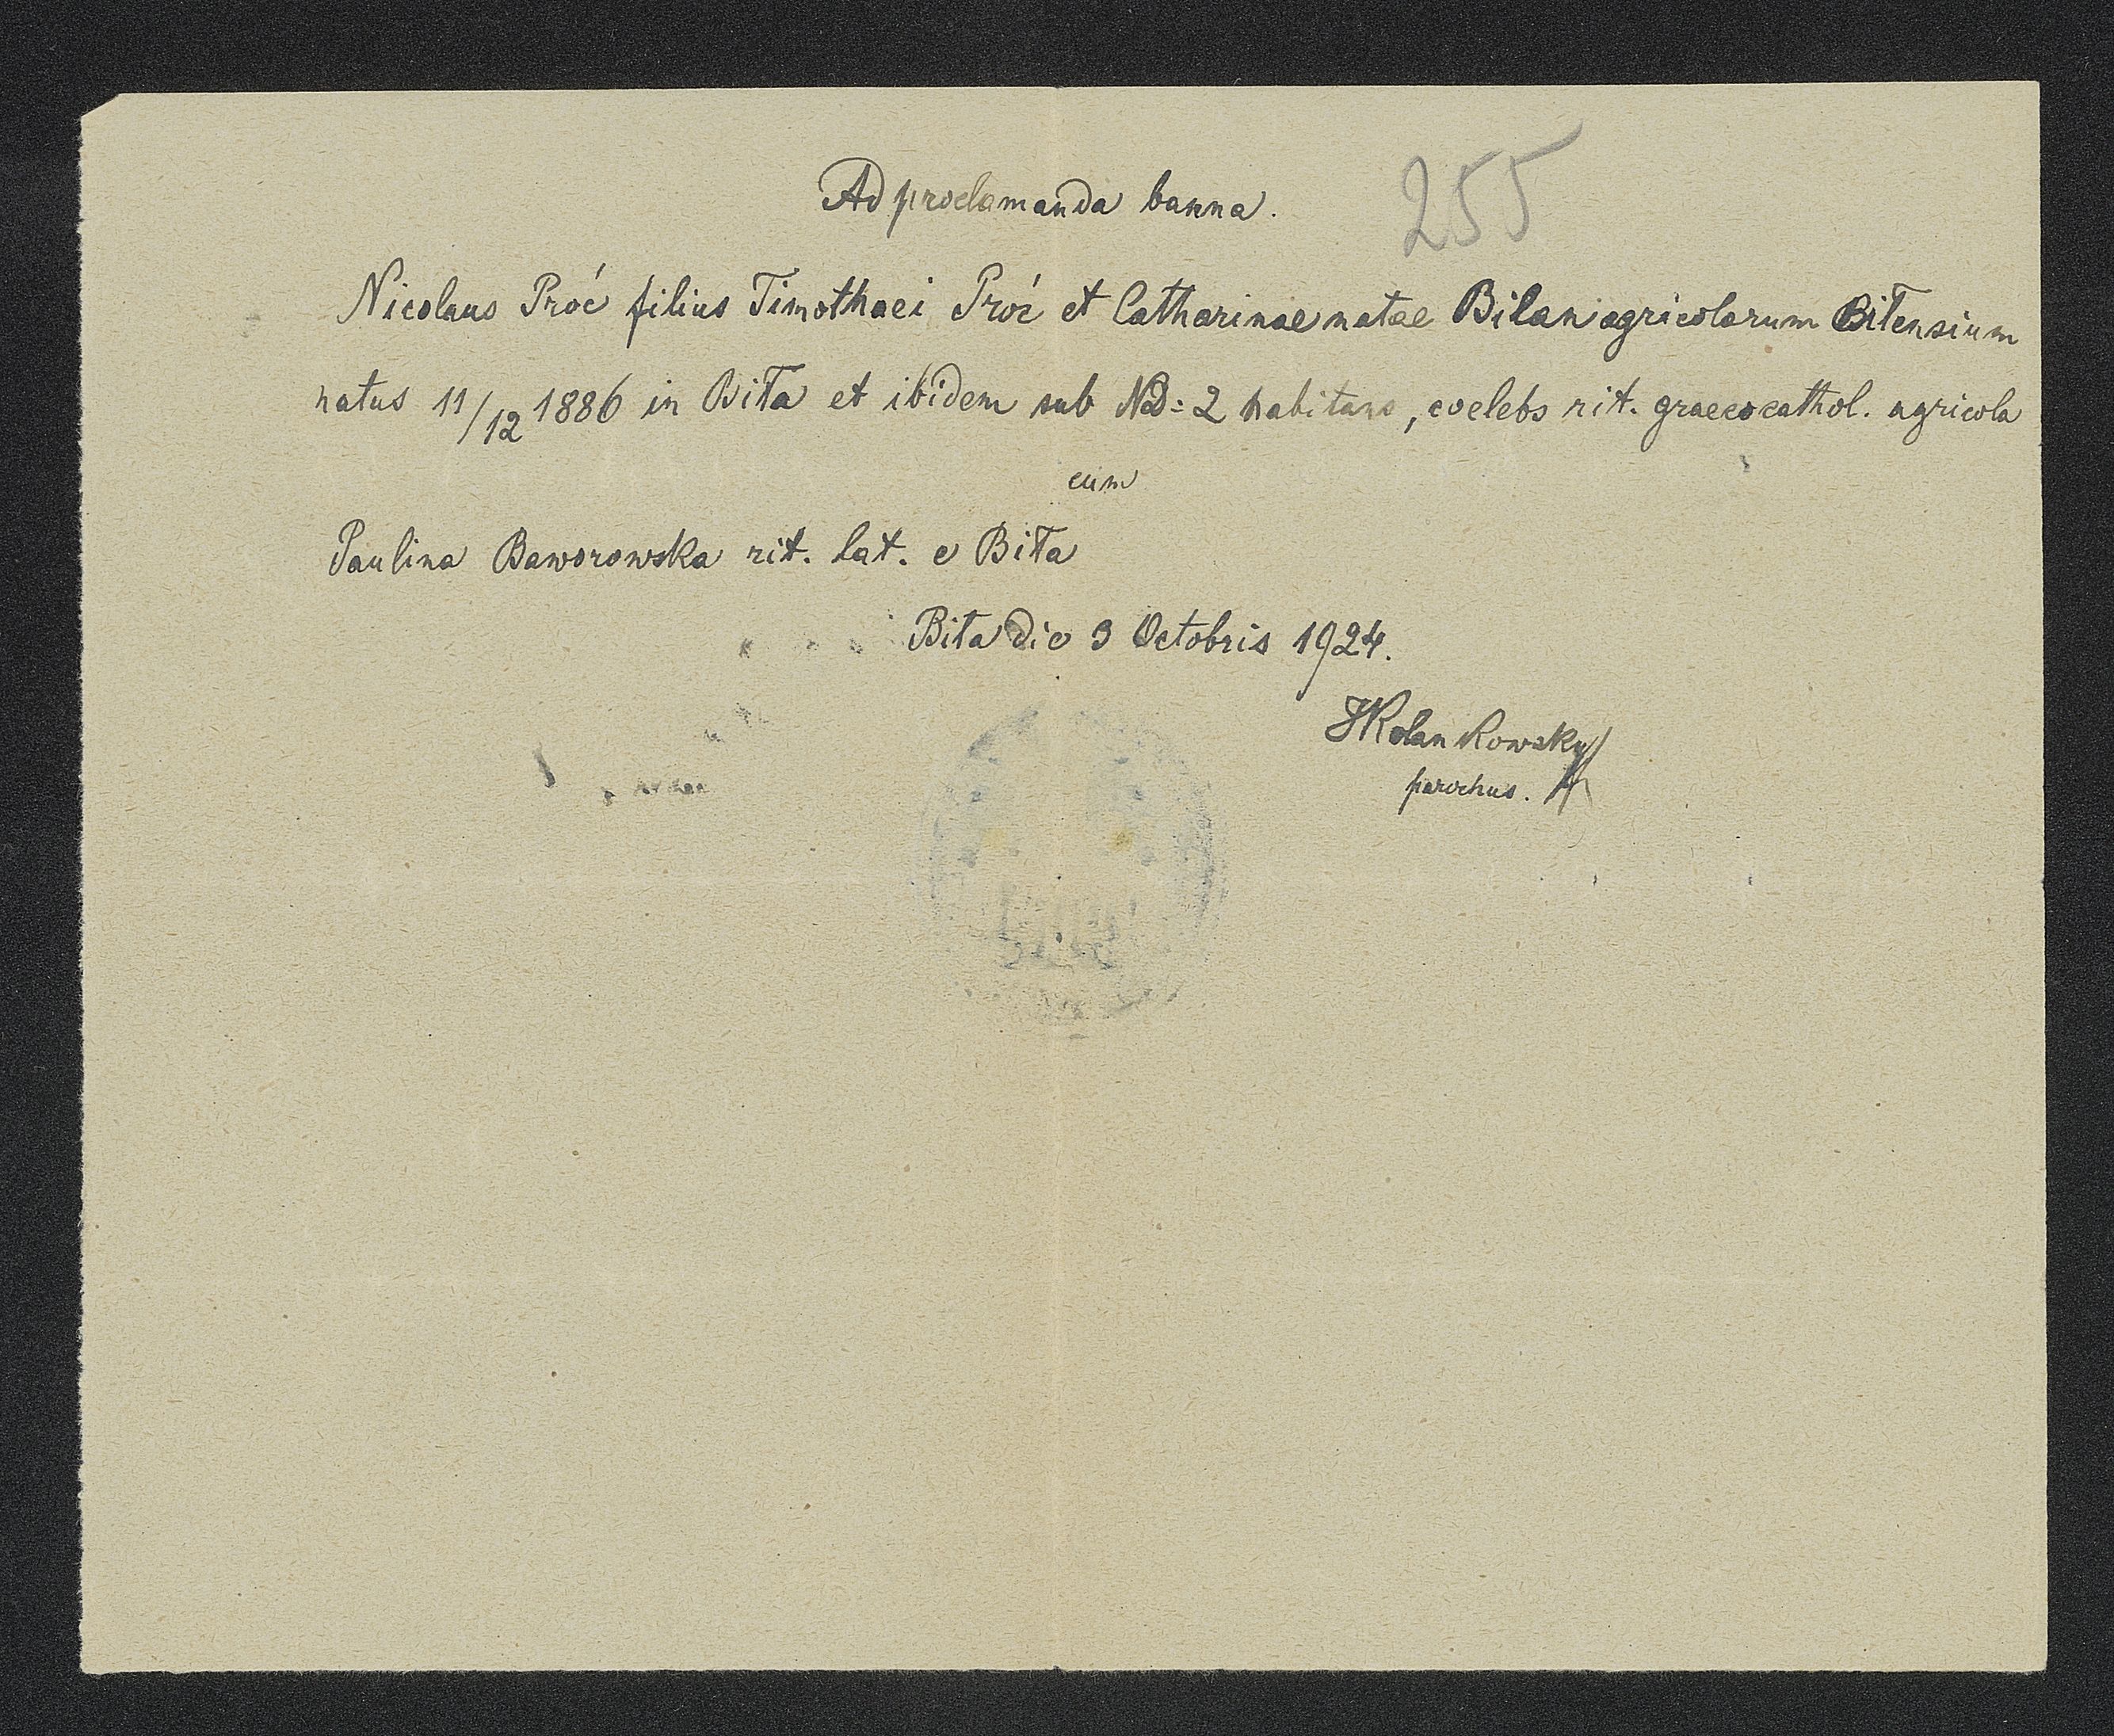 Ad proclamanda banna.
255
Nicolaus Proć filius Timothaei Proć et Catharinae natae Bilan agricolarum Bitensium
natus 11/12 1886 in Biła et ibidem sub Nd: 2 habitans, coelebs rit. graecocathol. agricola
cum
Paulina Baworowska rit. lat. e Biła
Biła die 3 Octobris 1924.
Kolankowsky
parochus.